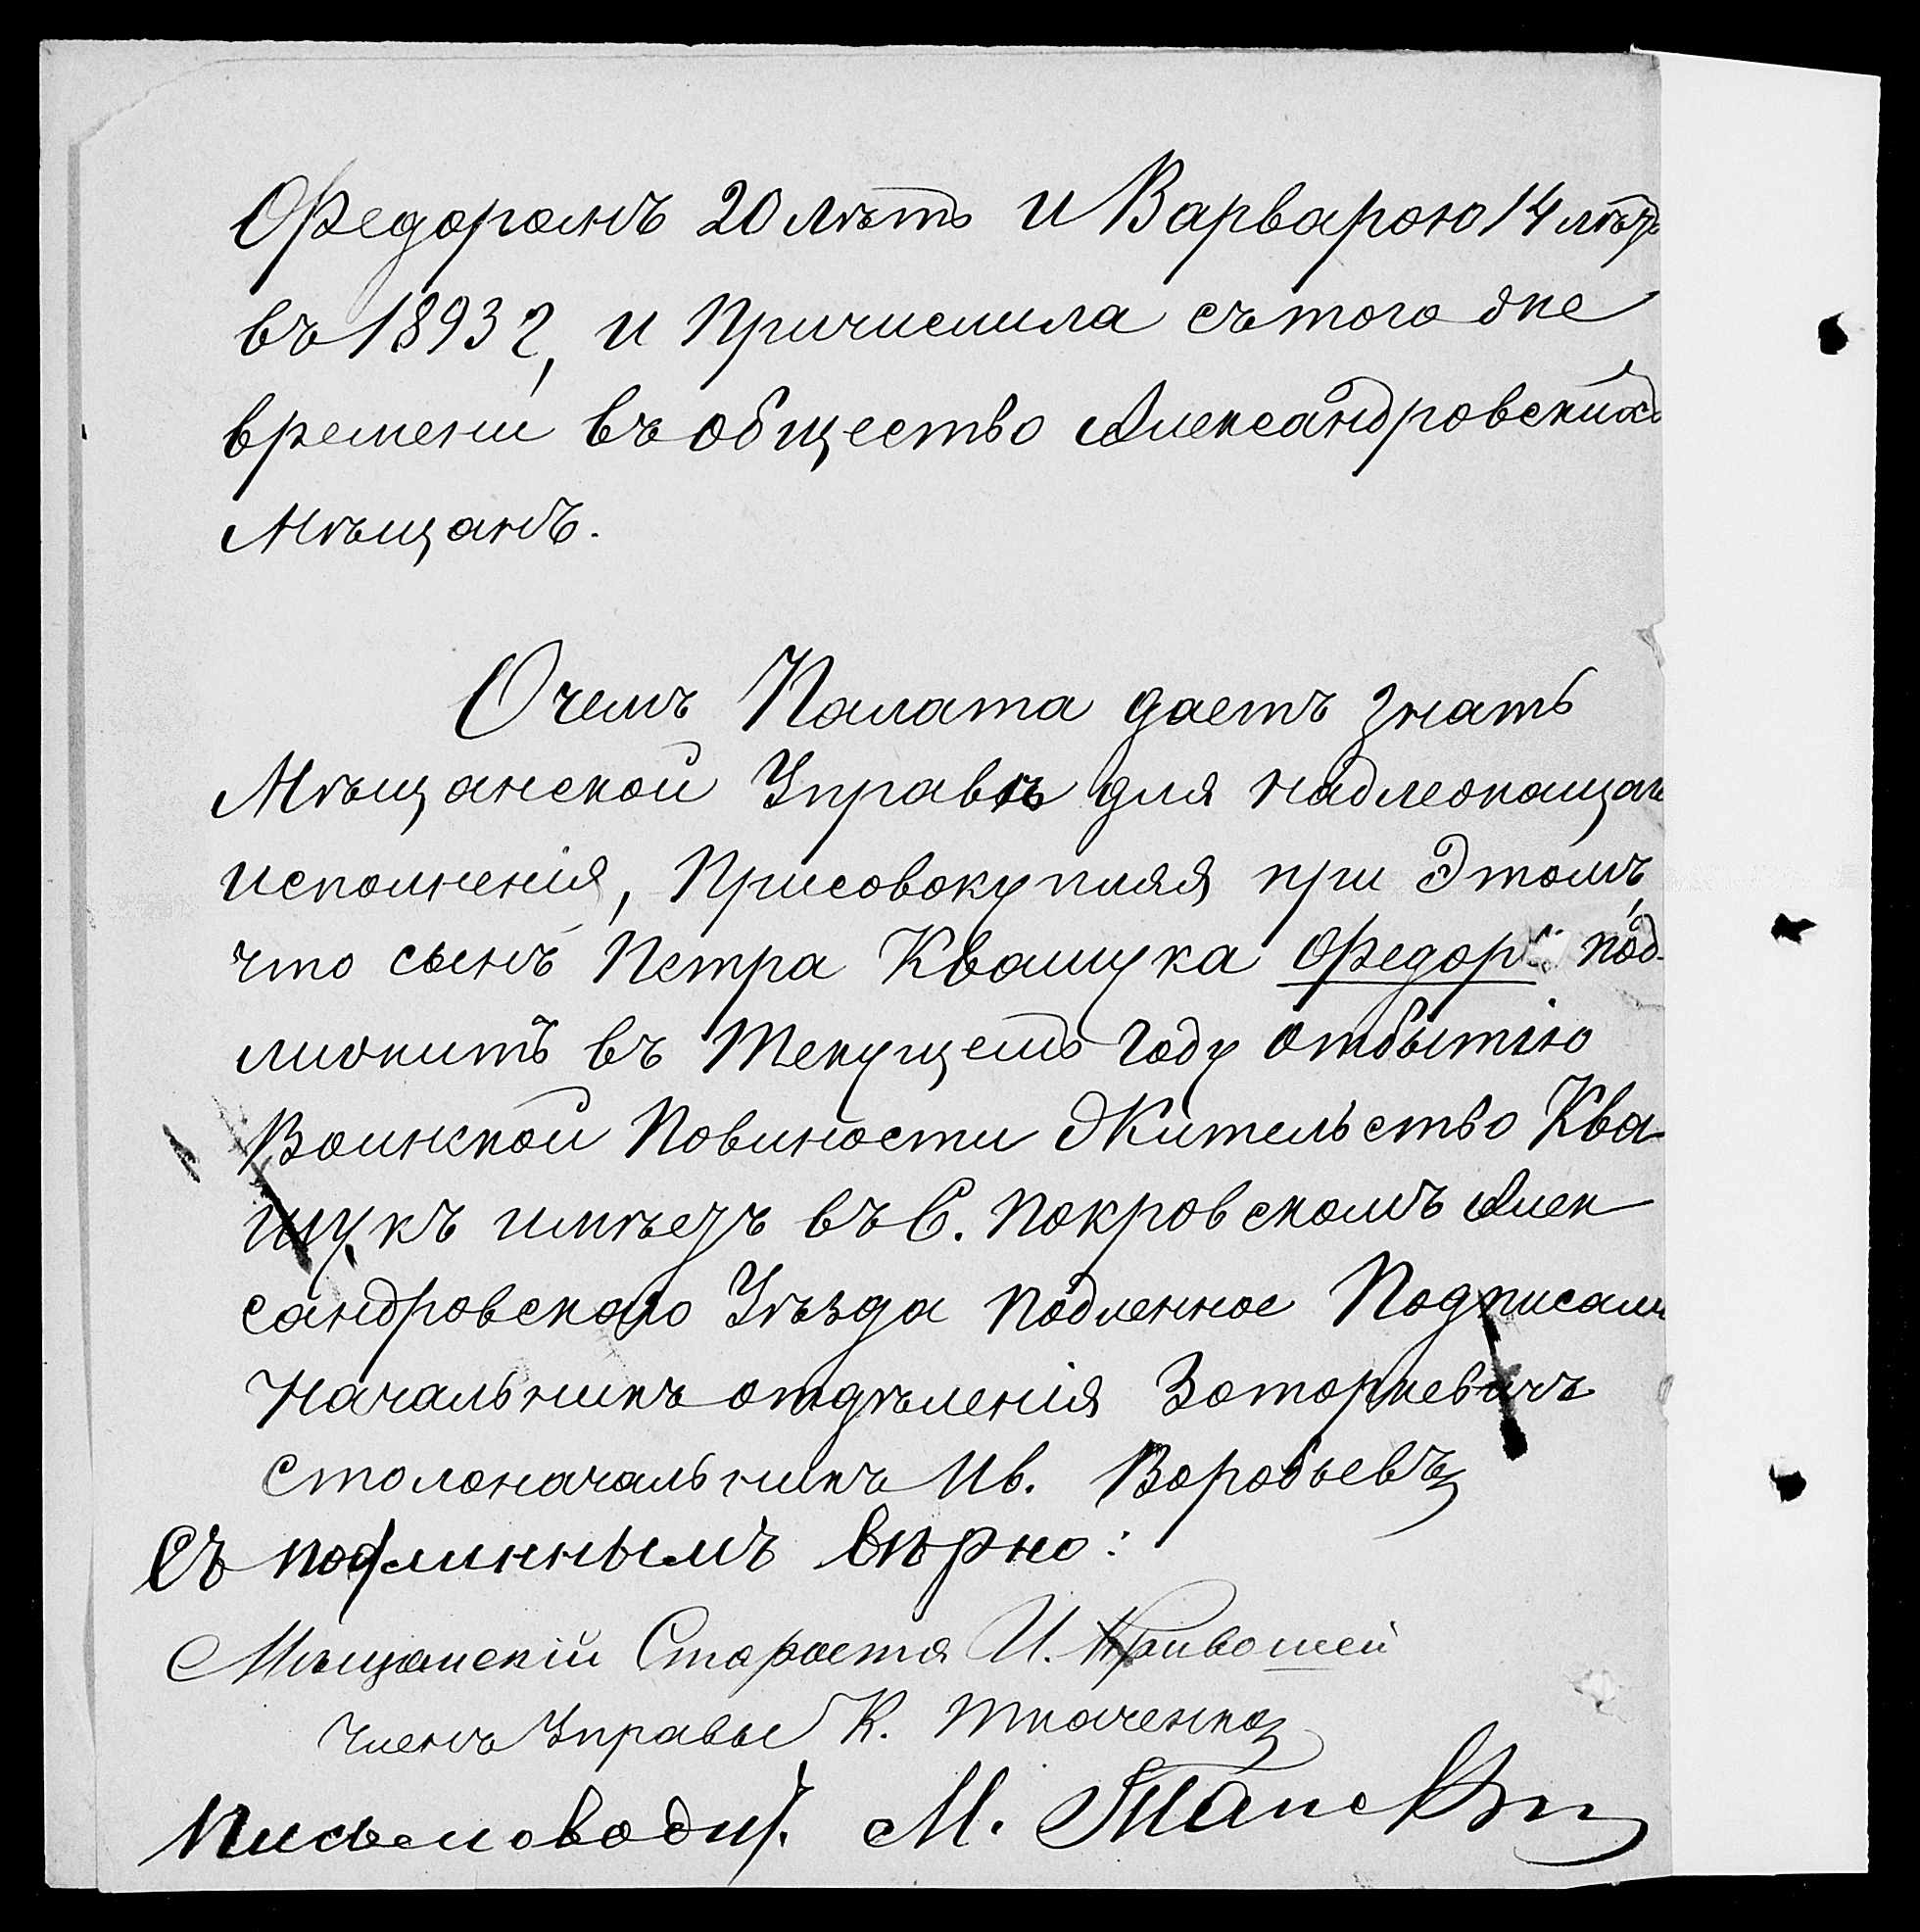 Федоромъ 20 лѣтъ и Варварою 14 лѣтъ
въ 1893 г, и Причислила съ того же
времени въ общество Александровскихъ
Мѣщанъ.
О чемъ Палата даетъ знать
Мѣщанской Управѣ для надлежащаго
исполненія, Присовокупляя при Этомъ,
что сынъ Петра Квашука Федоръ под-
лижитъ въ Текущемъ Году отбытію
Воинской Повиности Жительство Ква-
шукъ имѣетъ въ С. Покровскомъ Алек
сандровскаго Уѣзда Подленное Подписали
Начальникъ отдѣленія
столоначальникъ Ив. Воробьевъ
Съ подлиннымъ вѣрно:
Мѣщанскій Староста И. Кривошей
Членъ Управы К. Ткаченко
Письмоводит. М.